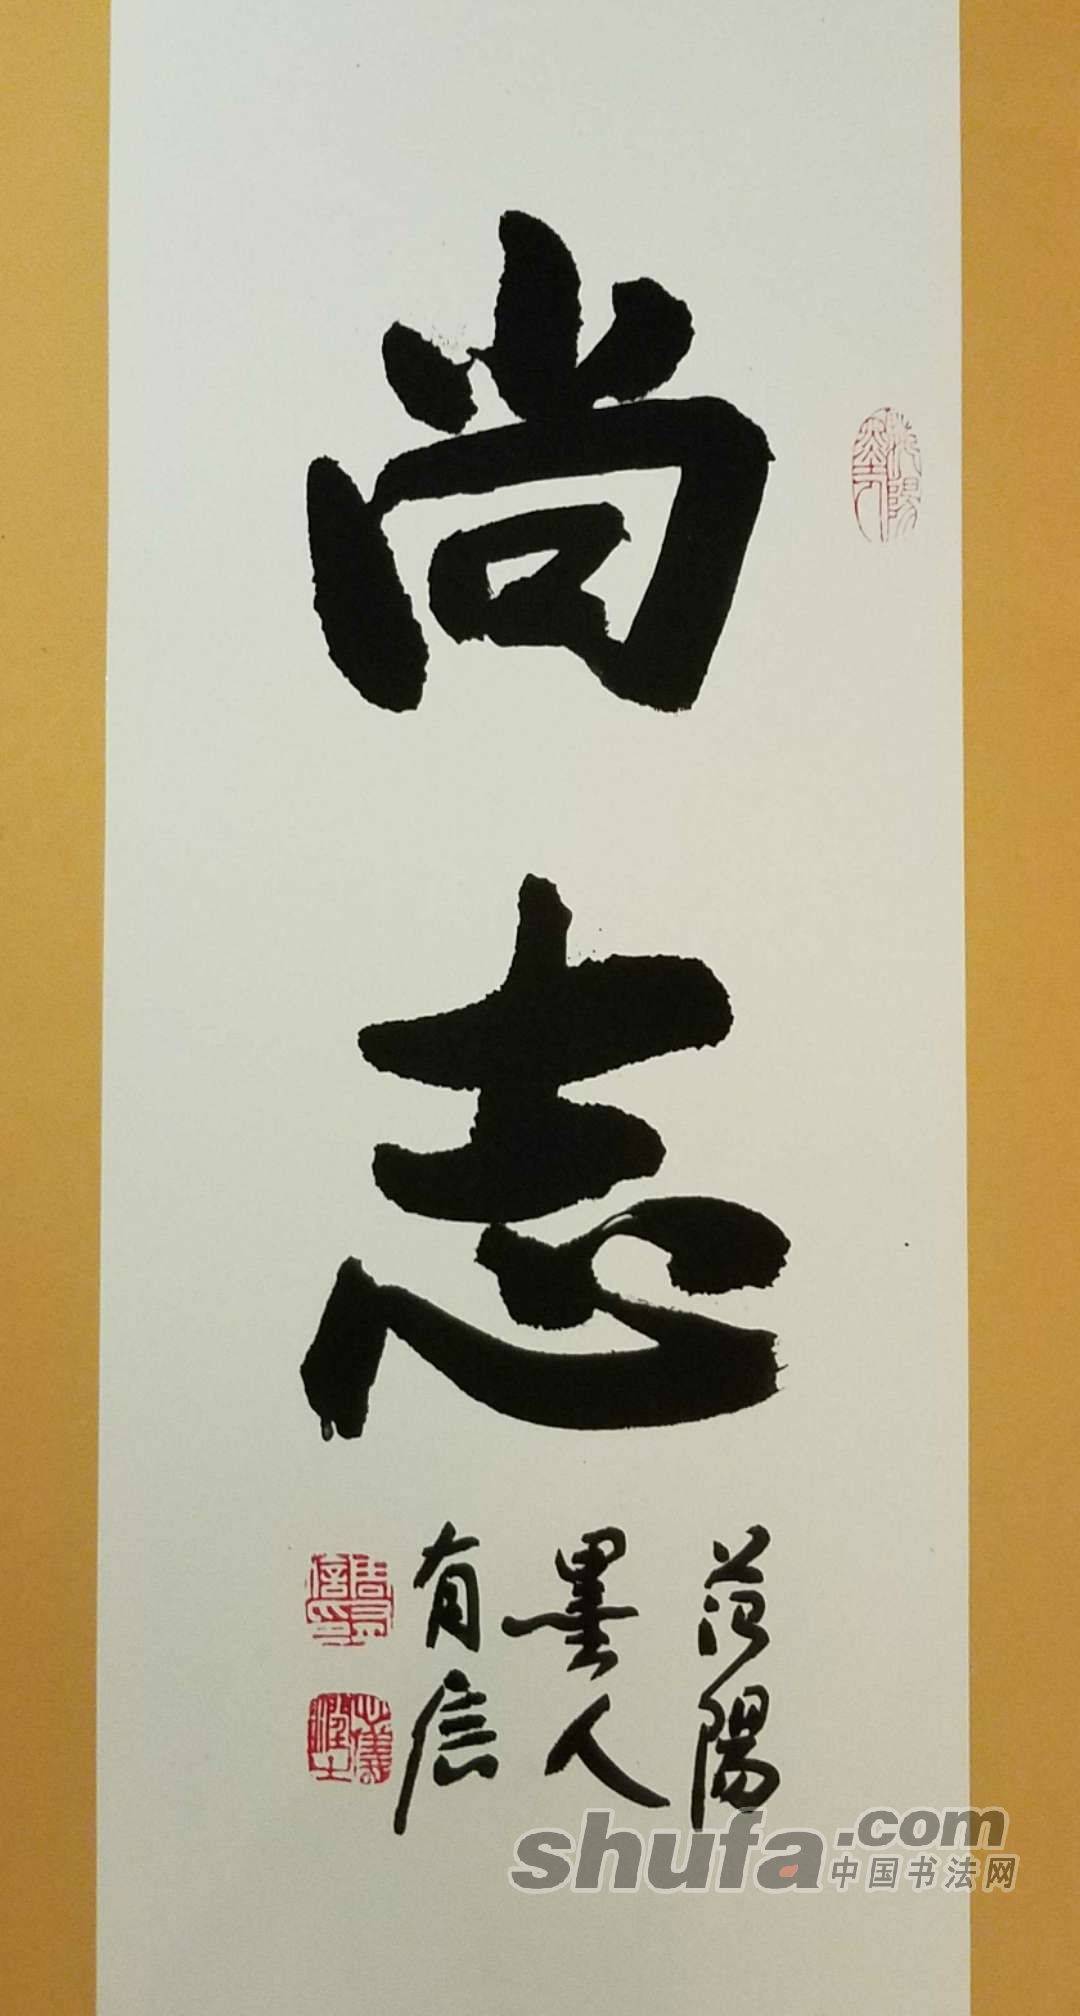 尚志
范陽
墨人
有信
shufa.com
中国书法网